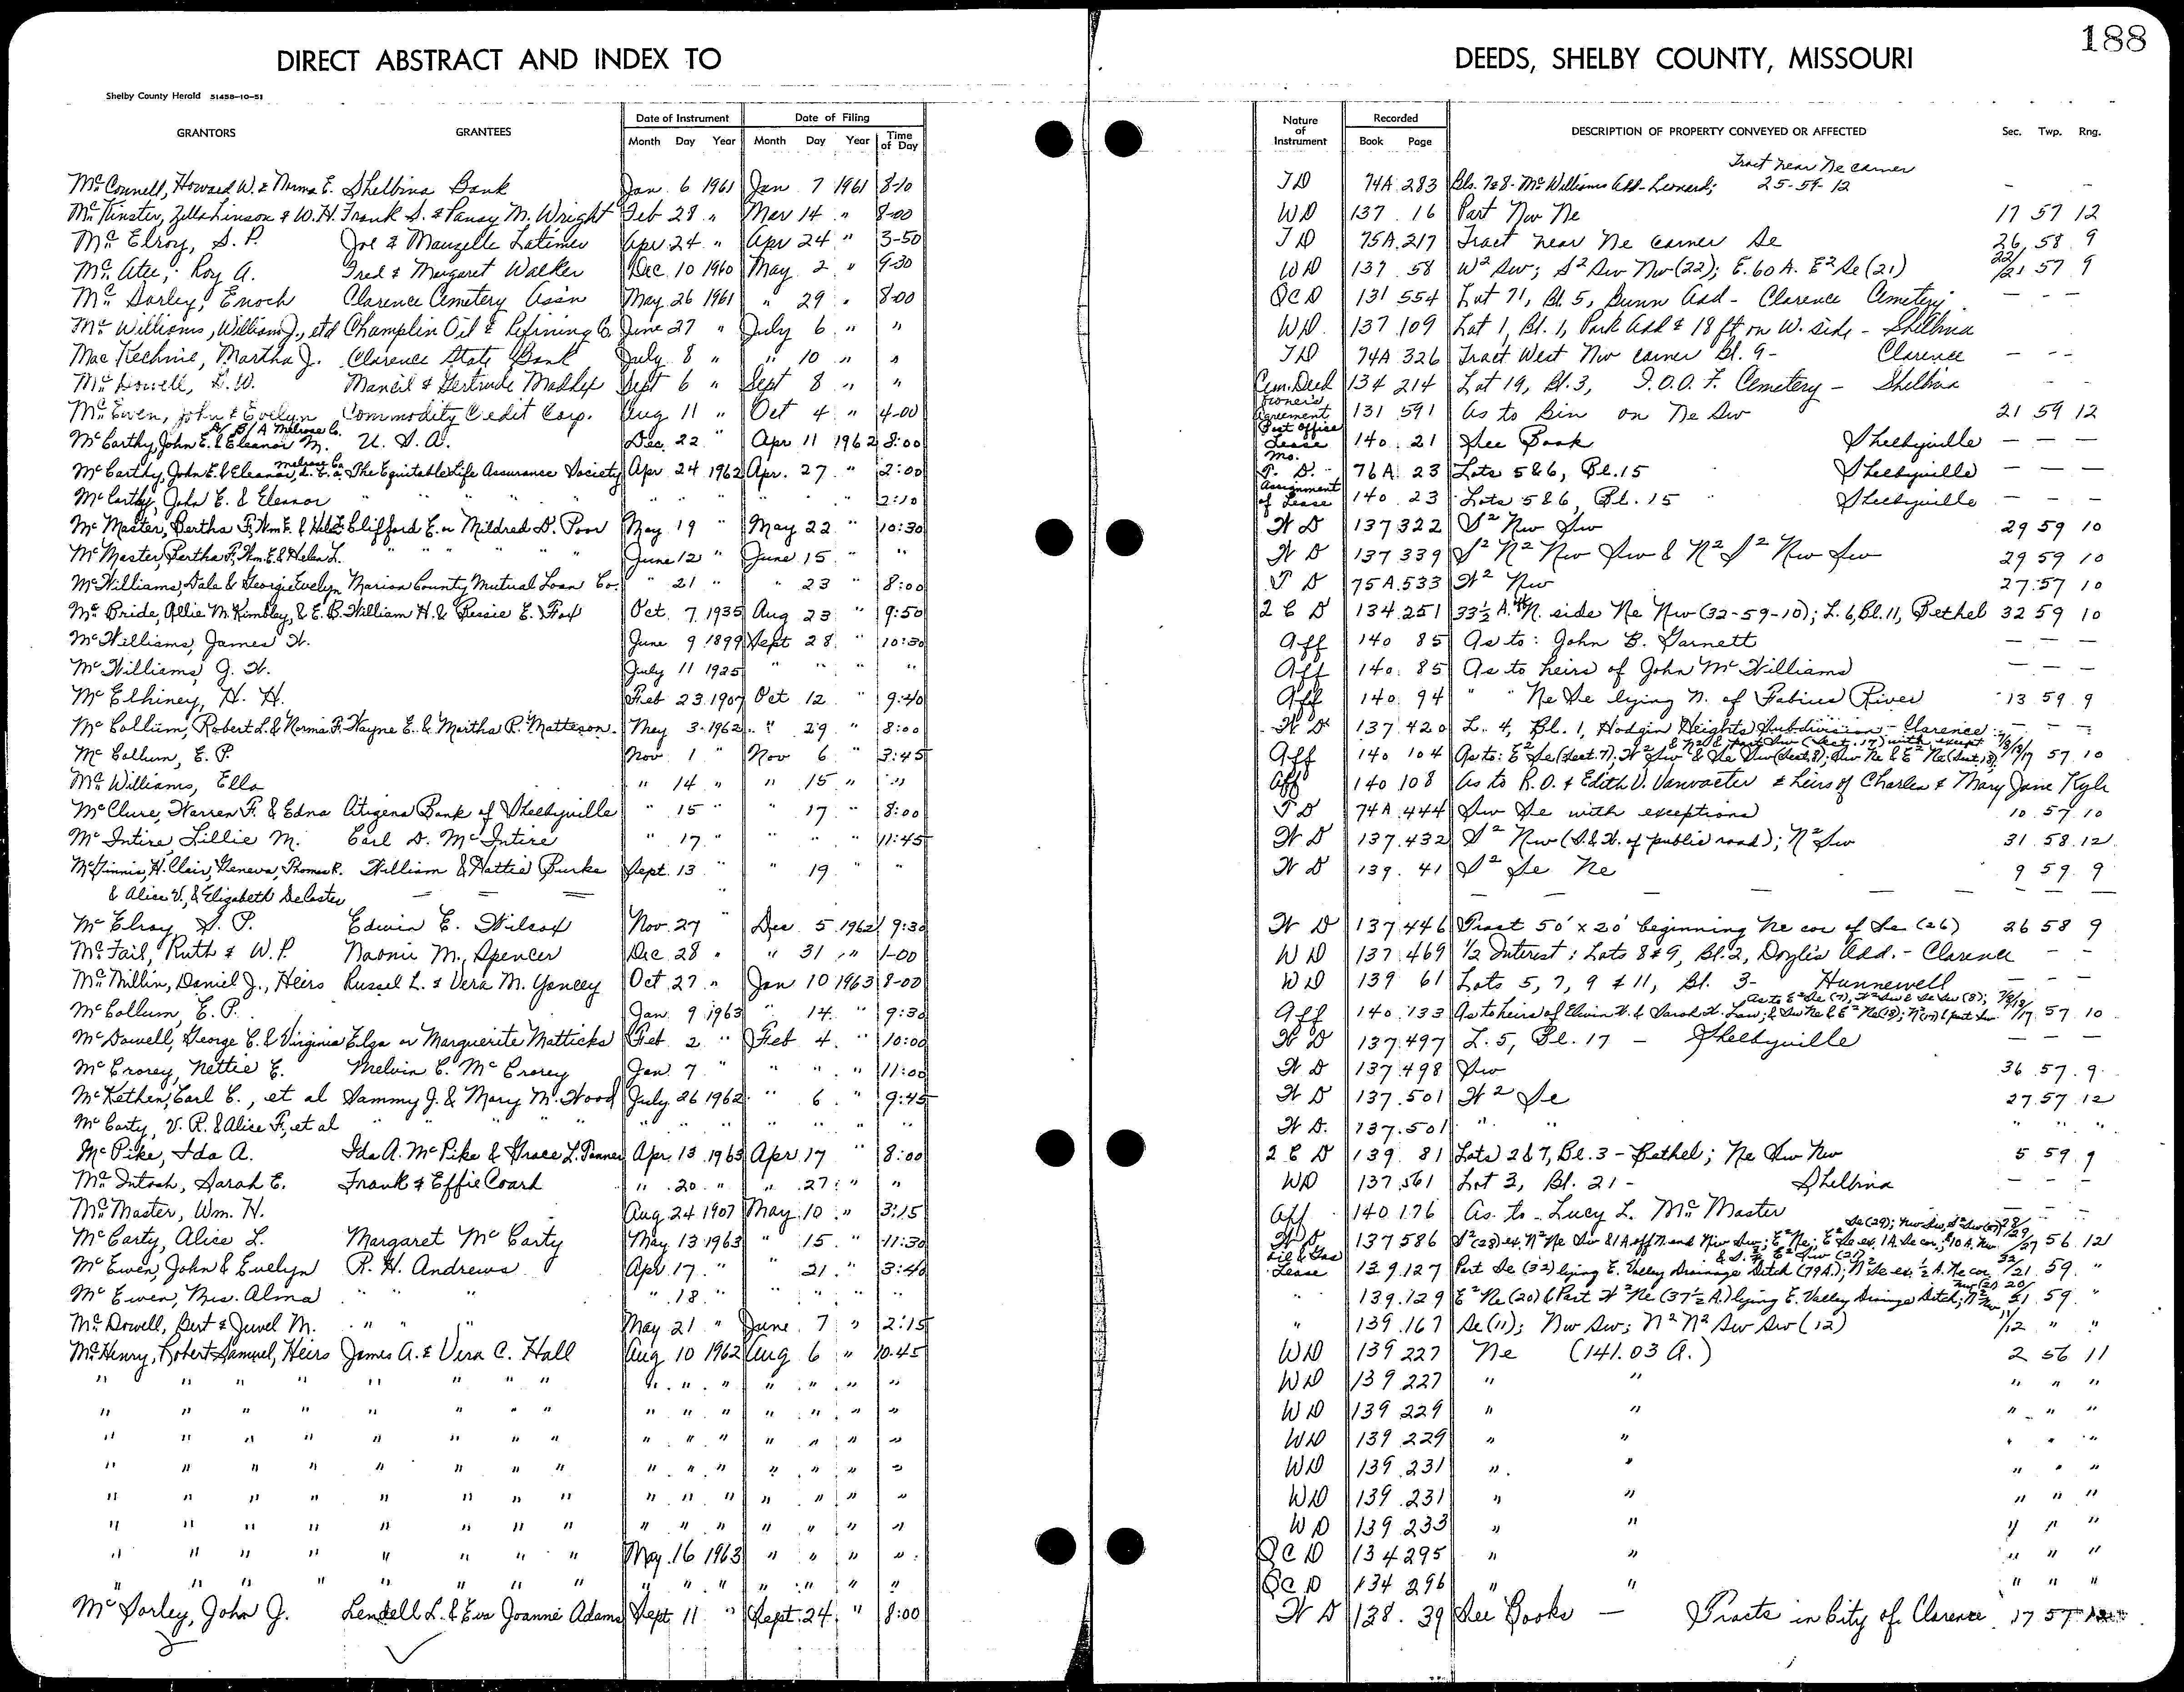 188
DIRECT ABSTRACT AND INDEX TO DEEDS, SHELBY COUNTY, MISSOURI
Shelby County Herald 51458-10-51
GRANTORS GRANTEES Date of Instrument Month Day Year Date of Filing Month Day Year Time of Day Nature of Instrument Recorded Book Page DESCRIPTION OF PROPERTY CONVEYED OR AFFECTED Sec. Twp. Rng.
Tract near Ne corner
McConnell, Howard W. & Norma E. Shelbina Bank Jan. 6 1961 Jan 7 1961 8-10 TD 74A 283 Bls. 7&8- McWilliams Add- Leonard; 25-59-12 - -
McKinster, Zella Linson & W.H. Frank S. & Pansy M. Wright Feb 28 " Mar 14 " 8-00 WD 137 16 Part Nw Ne 17 57 12
McElroy, S. P. Joe & Mauzelle Latimer Apr 24 " Apr 24 " 3-50 TD 75A 217 Tract near Ne corner Se 26 58 9
McAtee, Roy A. Fred & Margaret Walker Dec. 10 1960 May 2 " 9-30 WD 137 58 W² Sw; S² Sw Nw (22); E. 60 A. E² Se (21) 22/21 57 9
McSorley, Enoch Clarence Cemetery Ass'n May 26 1961 " 29 " 8-00 QCD 131 554 Lot 71, Bl. 5, Bunn Add - Clarence Cemetery - - -
McWilliams, William J., etal Champlin Oil & Refining Co. June 27 " July 6 " " WD 137 109 Lot 1, Bl. 1, Park Add & 18 ft on W. side - Shelbina
MacKechnie, Martha J. Clarence State Bank July 8 " " 10 " " TD 74A 326 Tract West Nw corner Bl. 9- Clarence - - -
McDowell, L. W. Mancil & Gertrude Maddex Sept 6 " Sept 8 " " Cem. Deed 134 214 Lot 19, Bl. 3, I.O.O.F. Cemetery - Shelbina - -
McEwen, John & Evelyn Commodity Credit Corp. Aug 11 " Oct 4 " 4-00 Owner's Agreement 131 591 As to Bin on Ne Sw 21 59 12
McCarthy, John E. & Eleanor M. D/B/A Melrose Co. U. S. A. Dec. 22 " Apr 11 1962 8:00 Post Office Lease 140 21 See Book Shelbyville - - -
McCarthy, John E. & Eleanor, Melrose Co. The Equitable Life Assurance Society Apr 24 1962 Apr. 27 " 2:00 Mo. T. D. 76A 23 Lots 5&6, Bl. 15 Shelbyville - - -
McCarthy, John E. & Eleanor " " " " " " " " 2:10 Assignment of Lease 140 23 Lots 5&6, Bl. 15 Shelbyville - - -
McMaster, Bertha F, Wm. E. & Helen L. Clifford E. or Mildred D. Poor May 19 " May 22 " 10:30 W D 137 322 S² Nw Sw 29 59 10
McMaster, Bertha F, Wm. E. & Helen L. " " " " June 12 " June 15 " " W D 137 339 S² N² Nw Sw & N² S² Nw Sw 29 59 10
McWilliams, Dale & Georgie Evelyn Marion County Mutual Loan Co. " 21 " " 23 " 8:00 T D 75A 533 W² Nw 27 57 10
McBride, Ollie M. Kimbley, & E. B. William H. & Bessie E. Fox Oct. 7 1935 Aug 23 " 9:50 2 C D 134 251 33½ A. N. side Ne Nw (32-59-10); L. 6, Bl. 11, Bethel 32 59 10
McWilliams, James W. June 9 1899 Sept 28 " 10:30 Aff 140 85 As to: John B. Garnett - - -
McWilliams, J. W. July 11 1925 " " " " Aff 140 85 As to heirs of John McWilliams - - -
McElhiney, H. H. Feb 23 1907 Oct 12 " 9:40 Aff 140 94 " " Ne Se lying N. of Fabius River 13 59 9
McCollum, Robert L. & Norma F. Wayne E. & Martha P. Matteson May 3 1962 " 29 " 8:00 W D 137 420 L. 4, Bl. 1, Hodgin Heights Subdivision - Clarence - - -
McCollum, E. P. Nov 1 " Nov 6 " 3:45 Aff 140 104 As to: E² Se (Sect. 7); W² Sw & Se Sw (Sect. 8); Sw Ne & E² Ne (Sect. 18); & N² & part Sw (Sect. 17) with except 7/8/18/17 57 10
McWilliams, Ella " 14 " " 15 " " Aff 140 108 As to R. O. & Edith V. Vanvacter & heirs of Charles & Mary Jane Kyle
McClure, Warren F. & Edna Citizens Bank of Shelbyville " 15 " " 17 " 8:00 T D 74A 444 Sw Se with exceptions 10 57 10
McIntire, Lillie M. Carl D. McIntire " 17 " " " " 11:45 W D 137 432 S² Nw (S. & W. of public road); N² Sw 31 58 12
McGinnis, H. Clair, Geneva, Thomas R. William & Hattie Burke Sept. 13 " " 19 " W D 139 41 S² Se Ne 9 59 9
& Alice V., & Elizabeth DeCoster - - - " - - - - - -
McElroy S. P. Edwin E. Wilcox Nov. 27 " Dec 5 1962 9:30 W D 137 446 Tract 50' x 20' beginning Ne cor of Se (26) 26 58 9
McFail, Ruth & W. P. Naomi M. Spencer Dec 28 " " 31 " 1-00 WD 137 469 ½ Interest: Lots 8&9, Bl. 2, Doyle's Add. - Clarence - -
McMillin, Daniel J., Heirs Russel L. & Vera M. Yancey Oct. 27 " Jan 10 1963 8-00 WD 139 61 Lots 5, 7, 9 & 11, Bl. 3- Hunnewell - - -
McCollum, E. P. Jan. 9 1963 " 14 " 9:30 Aff 140 133 As to heirs of Elvin W. & Sarah H. Law; As to E² Se (7), W² Sw & Se Sw (8); & Sw Ne & E² Ne (18); N² (17) & part Sw 7/8/18/17 57 10
McDowell, George C. & Virginia Elza or Marguerite Matticks Feb 2 " Feb 4 " 10:00 W D 137 497 L. 5, Bl. 17 - Shelbyville - - -
McCrorey, Nettie E. Melvin C. McCrorey Jan. 7 " " " " 11:00 W D 137 498 Sw 36 57 9
McKethen, Carl C., et al Sammy J. & Mary M. Wood July 26 1962 " 6 " 9:45 W D 137 501 W² Se 27 57 12
McCarty, V. R. & Alice F, et al " " " " " " " " W D. 137 501 " " " " "
McPike, Ida A. Ida A. McPike & Grace L. Tanner Apr. 13 1963 Apr 17 " 8:00 2 C D 139 81 Lots 2&7, Bl. 3 - Bethel; Ne Sw Nw 5 59 9
McIntosh, Sarah E. Frank & Effie Coard " 20 " " 27 " " WD 137 561 Lot 3, Bl. 21 - Shelbina - - -
McMaster, Wm. H. Aug 24 1907 May 10 " 3:15 Aff 140 176 As to - Lucy L. McMaster - - -
McCarty, Alice L. Margaret McCarty May 13 1963 " 15 " 11:30 W D 137 586 56 12
McEwen, John & Evelyn R. H. Andrews Apr. 17 " " 21 " 3:40 Oil & Gas Lease 139 127 Part Se (32) lying E. Valley Drainage Ditch (79A.); 59 "
McEwen, Mrs. Alma " " " " 18 " " " " " " 139 129 E² Ne (20) & Part W² Ne (37½ A.) lying E. Valley Drainage Ditch; 59 "
McDowell, Bert & Juvel M. " " " May 21 " June 7 " 2:15 " 139 167 Se (11); Nw Sw; N² N² Sw Sw (12) 11/12 " "
McHenry, Robert Samuel, Heirs James A. & Vera C. Hall Aug 10 1962 Aug 6 " 10:45 WD 139 227 Ne (141.03 A.) 2 56 11
" " " " " " " " " " " " " " " WD 139 227 " " " " "
" " " " " " " " " " " " " " " WD 139 229 " " " " "
" " " " " " " " " " " " " " " WD 139 229 " " " " "
" " " " " " " " " " " " " " " WD 139 231 " " " " "
" " " " " " " " " " " " " " " WD 139 231 " " " " "
" " " " " " " " " " " " " " " WD 139 233 " " " " "
" " " " " " " " May 16 1963 " " " " QCD 134 295 " " " " "
" " " " " " " " " " " " " " " QCD 134 296 " " " " "
McSorley, John J. Lendell L. & Eva Joanne Adams Sept 11 " Sept. 24 " 8:00 W D 138 39 See Books - Tracts in City of Clarence 17 57